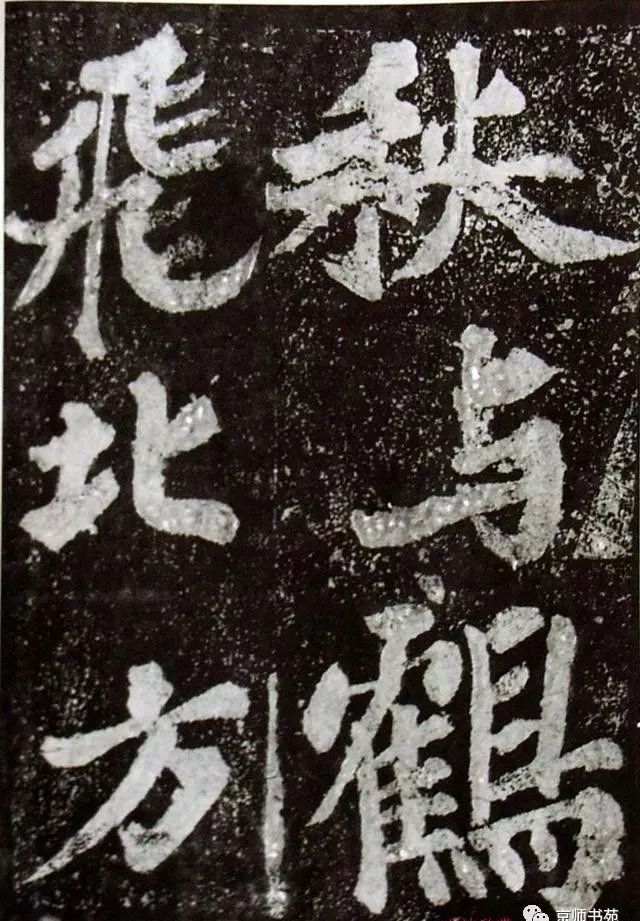 秋与鶴
飛北方
京师书苑